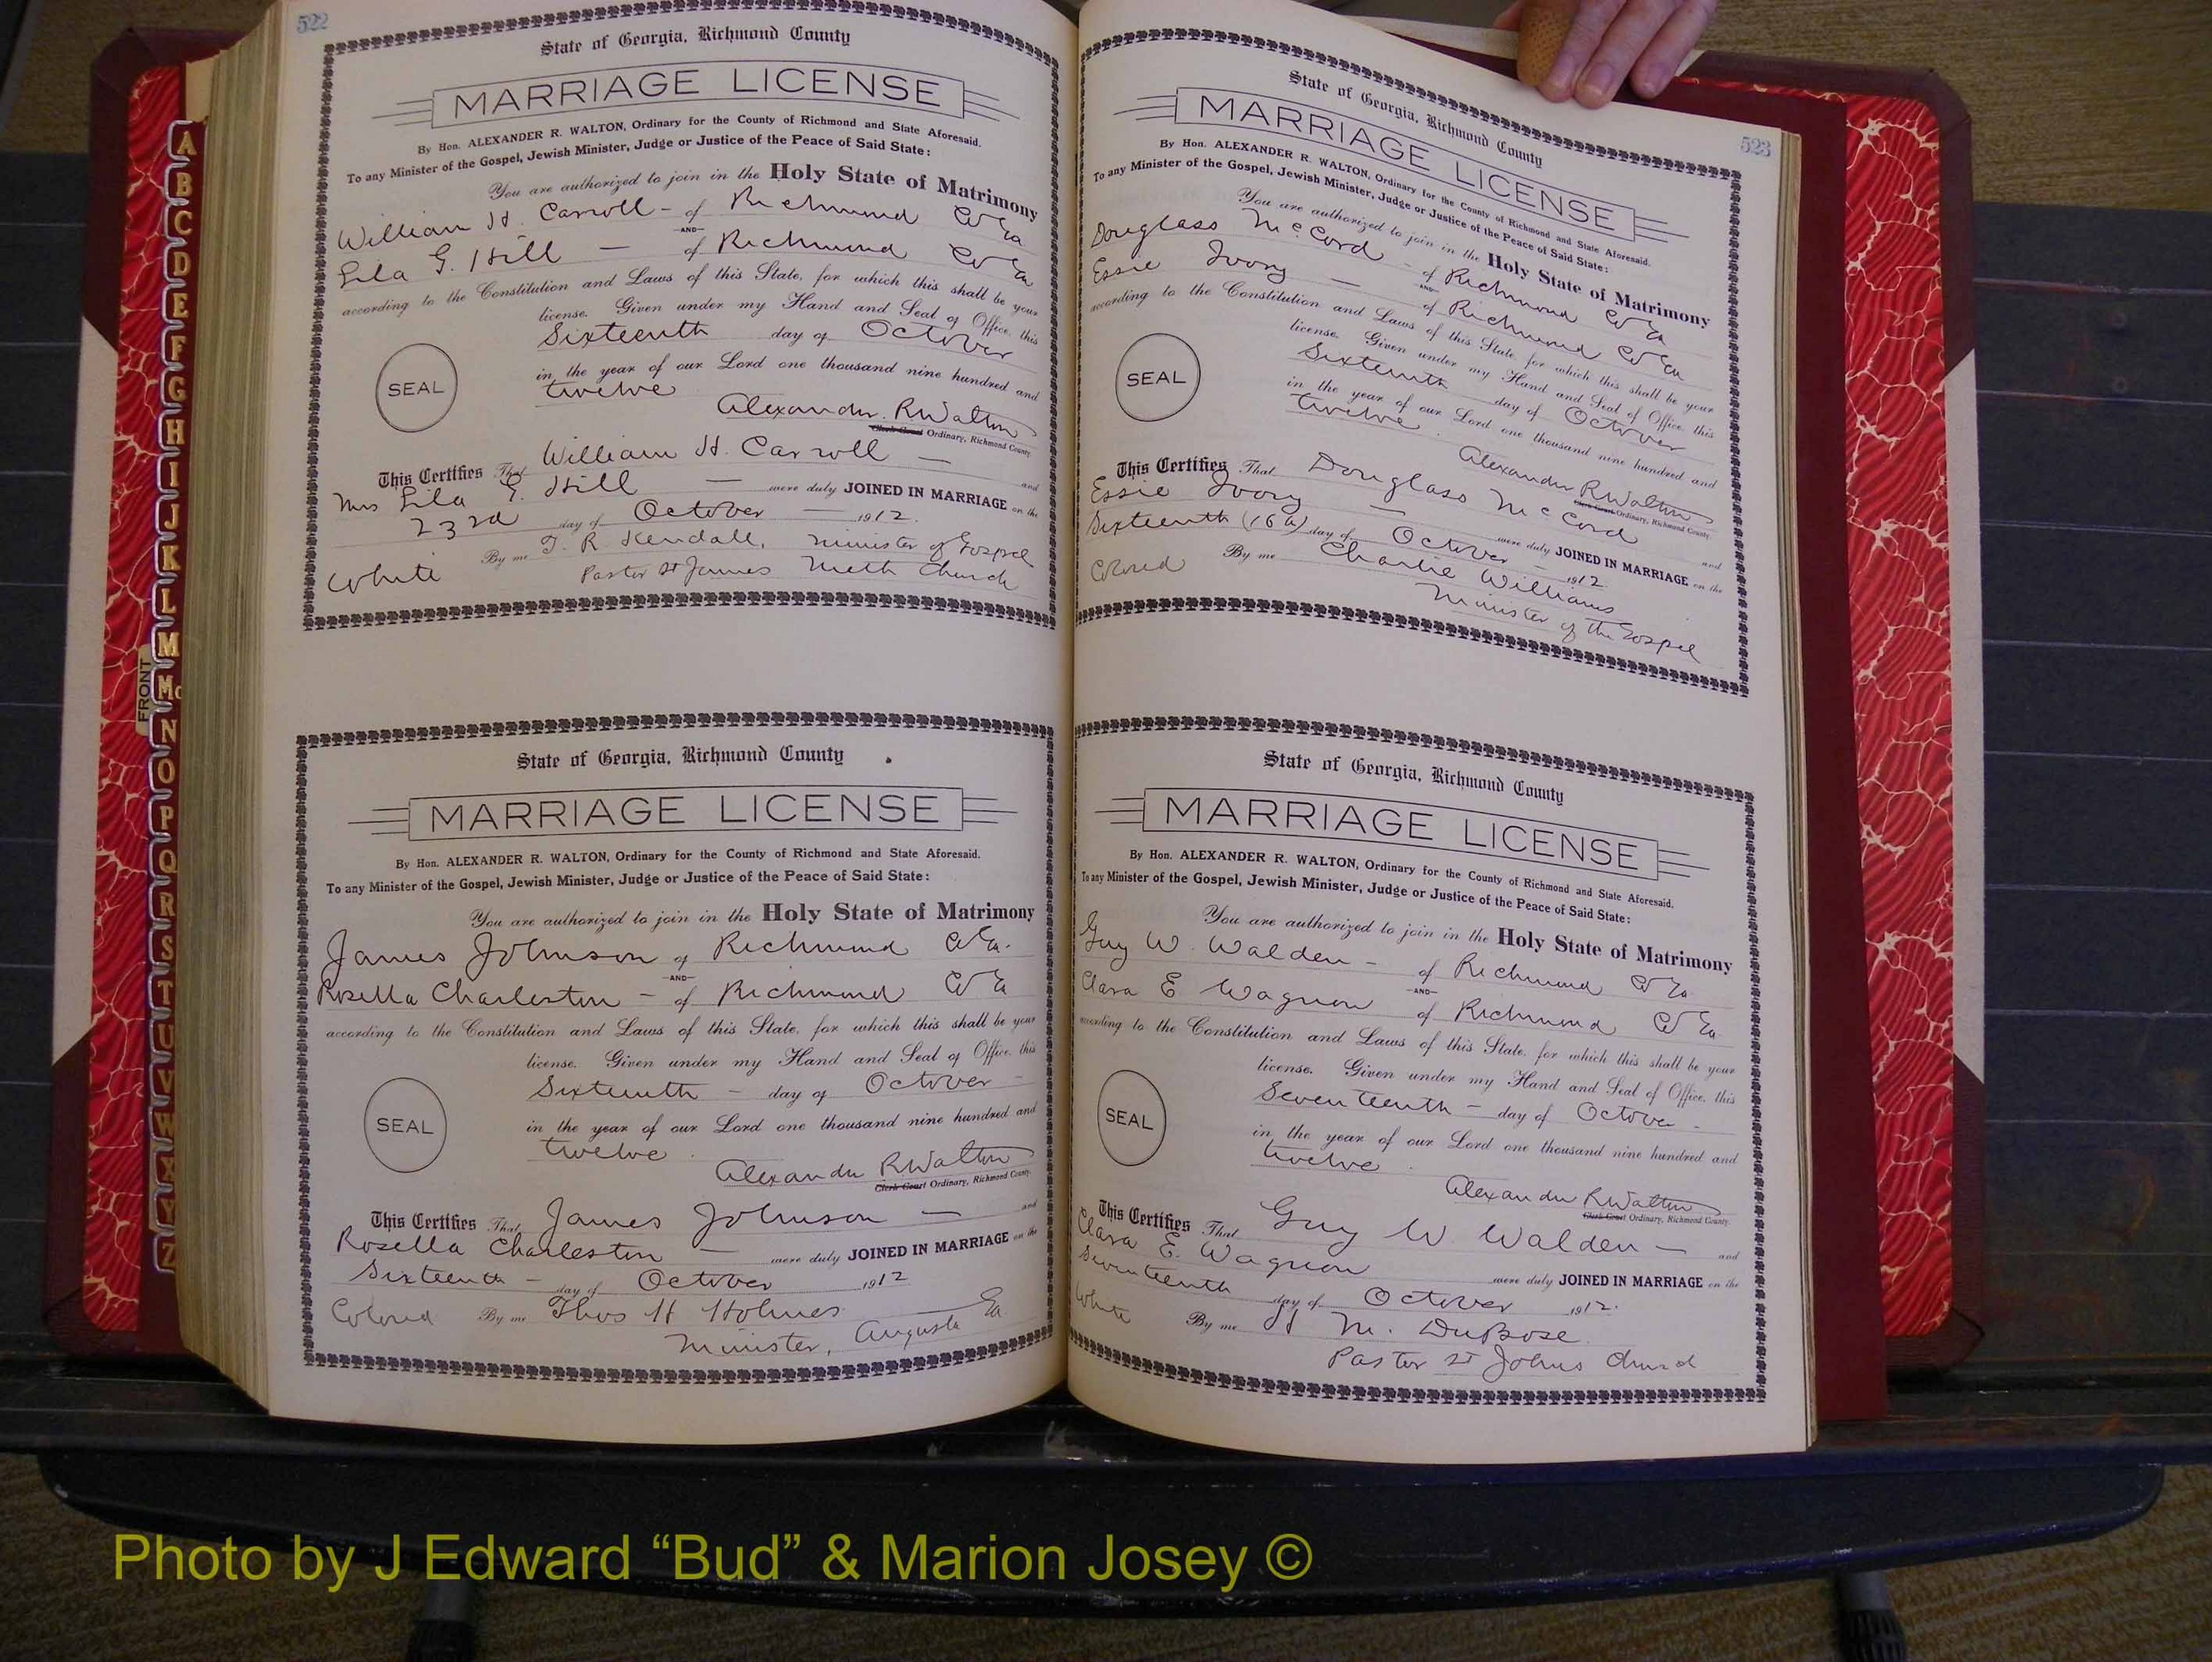 522
State of Georgia, Richmond County
MARRIAGE LICENSE
By Hon. ALEXANDER R. WALTON, Ordinary for the County of Richmond and State Aforesaid.
To any Minister of the Gospel, Jewish Minister, Judge or Justice of the Peace of Said State:
You are authorized to join in the Holy State of Matrimony
William H. Carroll - of Richmond Co Ga
AND
Lila G. Hill — of Richmond Co Ga
according to the Constitution and Laws of this State, for which this shall be your
license. Given under my Hand and Seal of Office, this
Sixteenth day of October
SEAL
in the year of our Lord one thousand nine hundred and
twelve
Alexander R Walton
Clerk Court Ordinary, Richmond County.
This Certifies That William H. Carroll — and
Mrs Lila G. Hill — were duly JOINED IN MARRIAGE on the
23rd day of October — 1912.
By me T. R. Kendall, Minister of Gospel
White Pastor St James Meth Church
State of Georgia, Richmond County
MARRIAGE LICENSE
By Hon. ALEXANDER R. WALTON, Ordinary for the County of Richmond and State Aforesaid.
To any Minister of the Gospel, Jewish Minister, Judge or Justice of the Peace of Said State:
You are authorized to join in the Holy State of Matrimony
James Johnson of Richmond Co Ga.
AND
Rosella Charleston - of Richmond Co Ga
according to the Constitution and Laws of this State, for which this shall be your
license. Given under my Hand and Seal of Office, this
Sixteenth - day of October -
SEAL
in the year of our Lord one thousand nine hundred and
twelve
Alexander R Walton
Clerk Court Ordinary, Richmond County.
This Certifies That James Johnson — and
Rosella Charleston — were duly JOINED IN MARRIAGE on the
Sixteenth - day of October 1912
Colored By me Thos H Holmes
Minister, Augusta Ga
523
State of Georgia, Richmond County
MARRIAGE LICENSE
By Hon. ALEXANDER R. WALTON, Ordinary for the County of Richmond and State Aforesaid.
To any Minister of the Gospel, Jewish Minister, Judge or Justice of the Peace of Said State:
You are authorized to join in the Holy State of Matrimony
Douglass McCord - of Richmond Co Ga
AND
Essie Ivory — of Richmond Co Ga
according to the Constitution and Laws of this State, for which this shall be your
license. Given under my Hand and Seal of Office, this
Sixteenth day of October
SEAL
in the year of our Lord one thousand nine hundred and
twelve
Alexander R Walton
Clerk Court Ordinary, Richmond County.
This Certifies That Douglass McCord and
Essie Ivory — were duly JOINED IN MARRIAGE on the
Sixteenth (16th) day of October - 1912
Colored By me Charlie Williams
Minister of the Gospel
State of Georgia, Richmond County
MARRIAGE LICENSE
By Hon. ALEXANDER R. WALTON, Ordinary for the County of Richmond and State Aforesaid.
To any Minister of the Gospel, Jewish Minister, Judge or Justice of the Peace of Said State:
You are authorized to join in the Holy State of Matrimony
Guy W. Walden - of Richmond Co Ga
AND
Clara E. Wagnon of Richmond Co Ga
according to the Constitution and Laws of this State, for which this shall be your
license. Given under my Hand and Seal of Office, this
Seventeenth - day of October -
SEAL
in the year of our Lord one thousand nine hundred and
twelve
Alexander R Walton
Clerk Court Ordinary, Richmond County.
This Certifies That Guy W. Walden — and
Clara E. Wagnon were duly JOINED IN MARRIAGE on the
Seventeenth day of October 1912.
White By me H M. DuBose
Pastor St Johns Church
FRONT
A
B
C
D
E
F
G
H
I
J
K
L
M
Mc
N
O
P
Q
R
S
T
U
V
W
X
Y
Z
Photo by J Edward “Bud” & Marion Josey ©